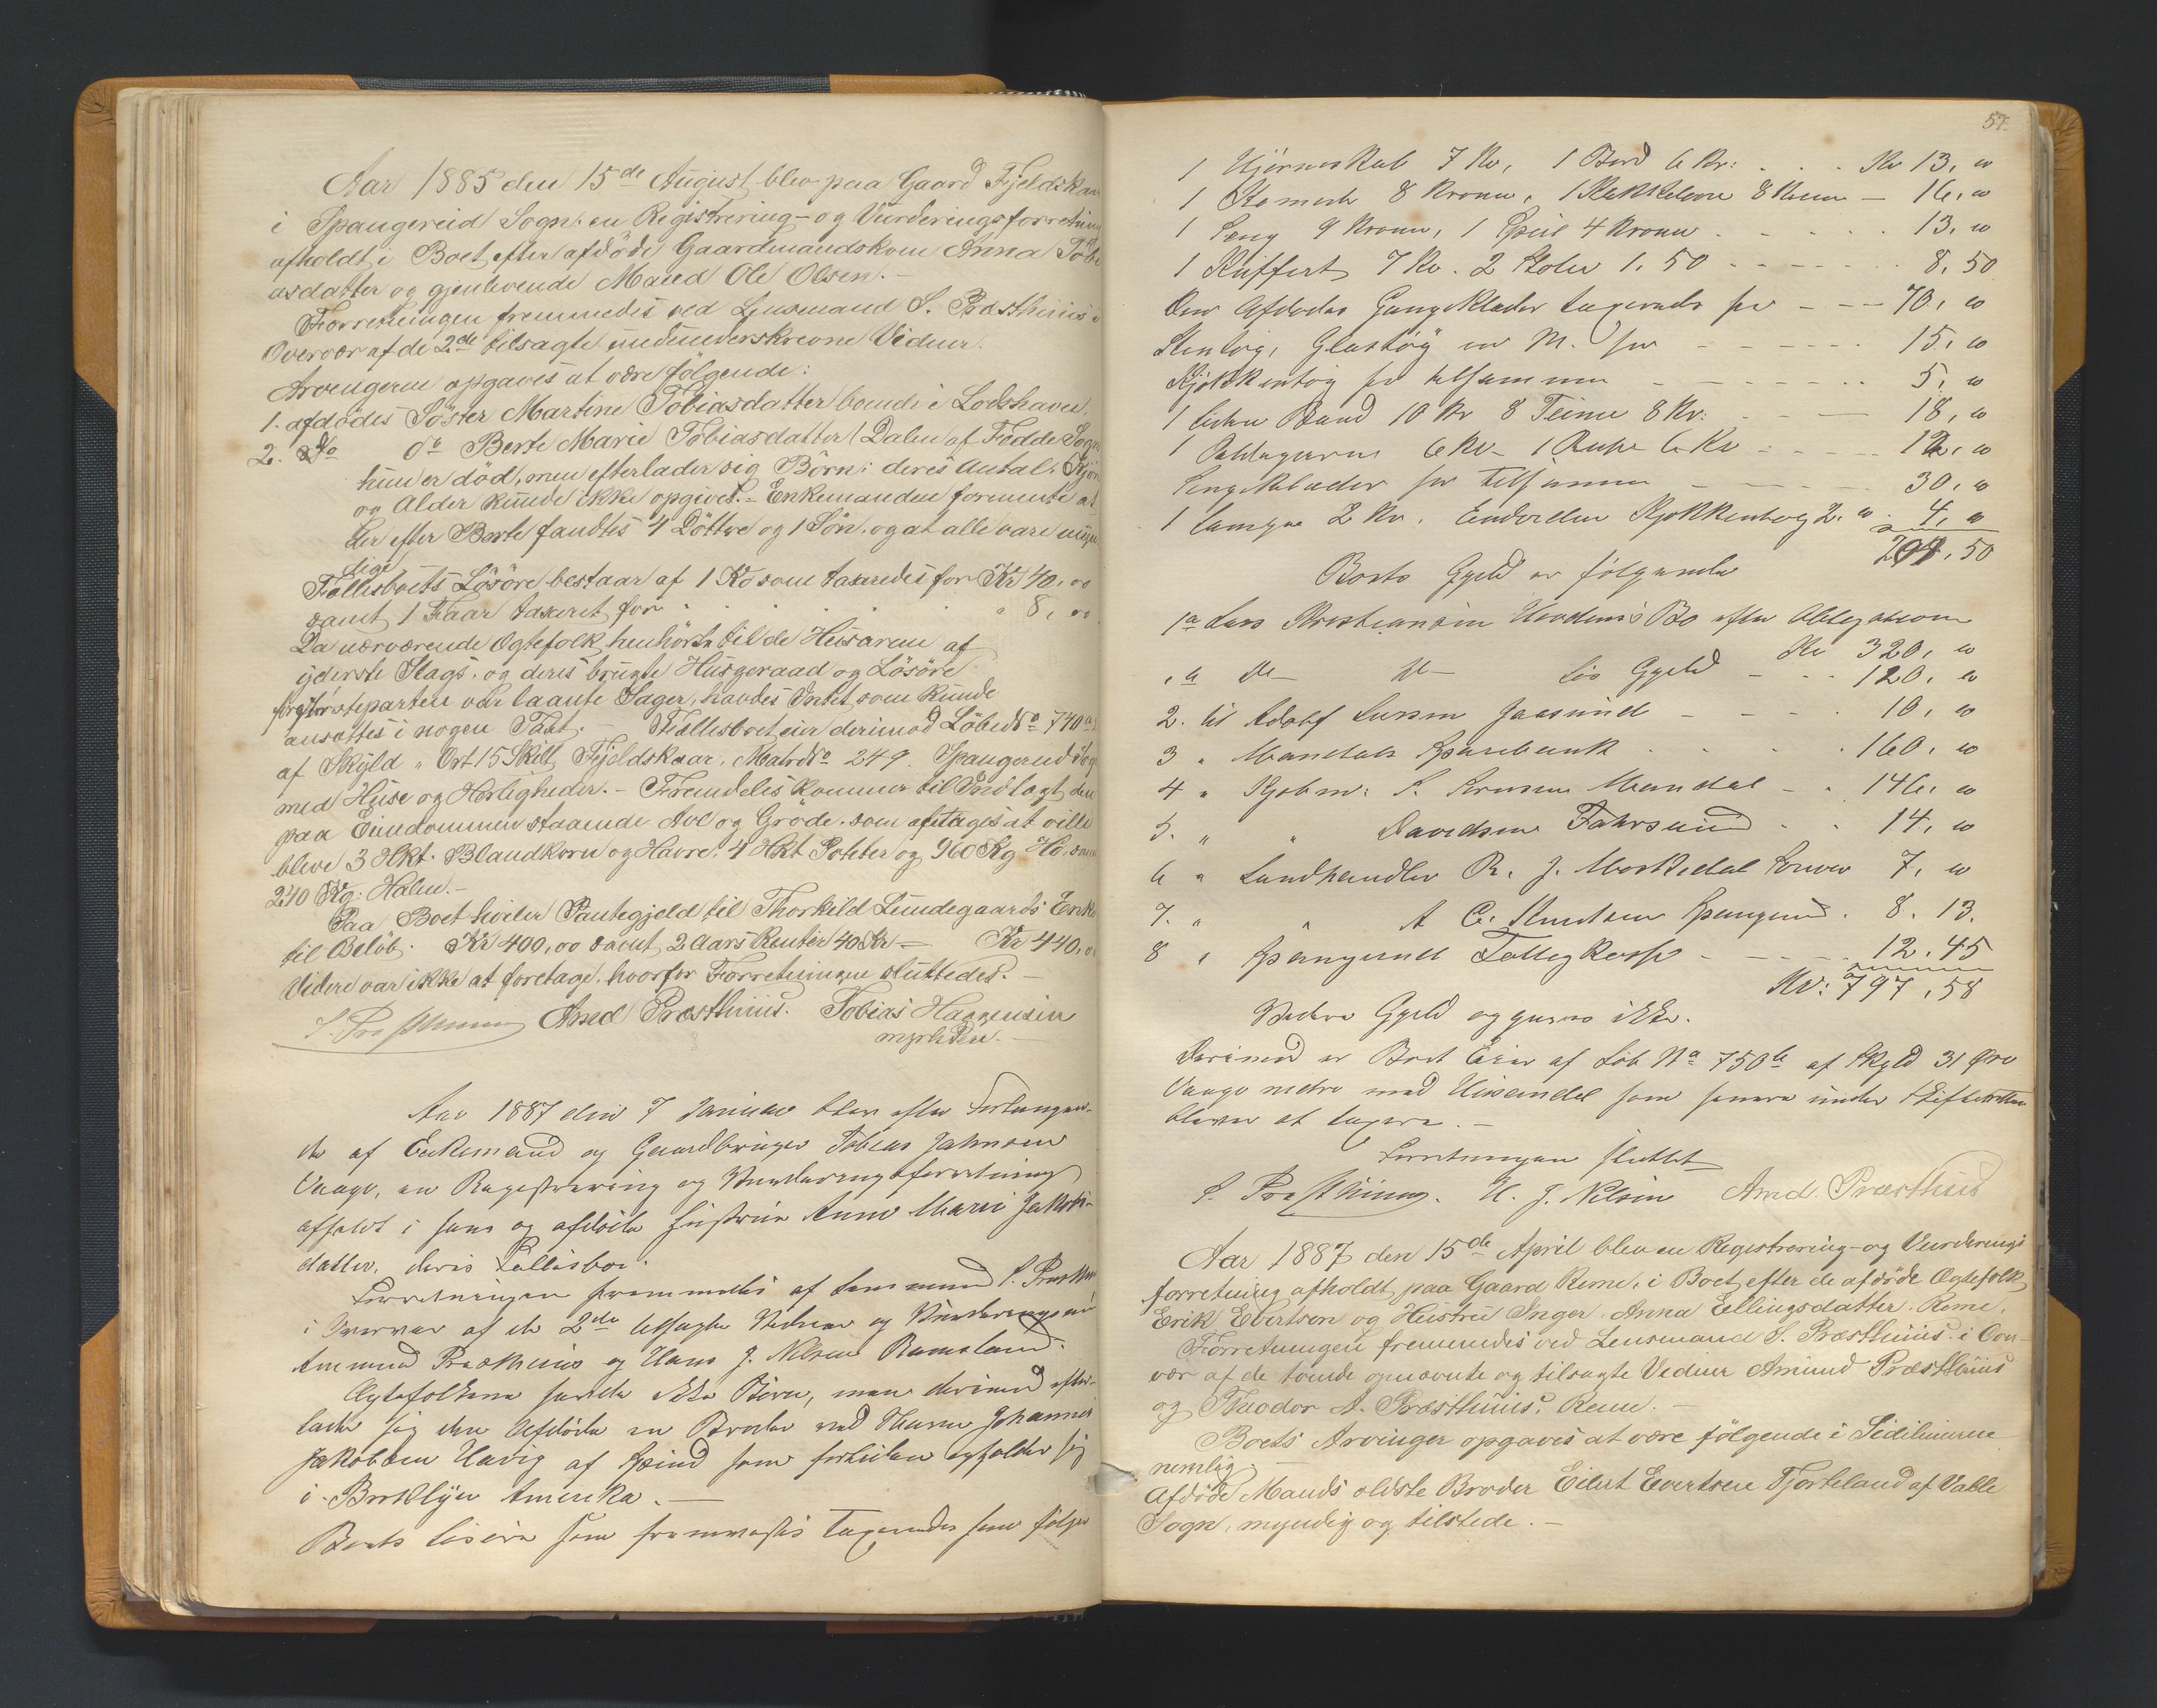 Aar 1885 den 15de August blev paa Gaard Fjeldskaar
i Spangereid Sogn en Registrering- og Vurderingsforretning
afholdt i Boet efter afdöde Gaardmandskone Anna Tobi
asdatter og gjenlevende Mand Ole Olsen.-
Forretningen fremmedes ved Lensmand S. Præsthuus i
Overvær af de 2de tilsagte undunderskrevne Vidner.
Arvengerne opgaves at være følgende:
1. afdödes Söster Martine Tobiasdatter boende i Lodshavn.
2. Do do Berte Marie Tobiasdatter Dalen af Fodde Sogn
hun er död, men efterlader sig Börn; deres Antal, Kjön
og Alder kunde ikke opgives.- Enkemanden formente at
der efter Berte fandtes 4 Döttre og 1 Sön, og at alle vare myn
dige
Fællesboets Lösöre bestaar af 1 Ko som taxeredes for Kr 40,00
samt 1 Faar taxeret for " 8,00
Da nærværende Ægtefolk henhörte til de Husarme af
yderste Slags, og deres brugte Husgeraad og Lösöre
for störsteparten var laante Sager, havdes Intet som kunde
ansættes i nogen Taxt.- Fællesboet eier derimod Löbe No 740a
af Skyld " Ort 15 Skill, Fjeldskaar, Matr No 249. Spangereid Sogn
med Huse og Herligheder.- Fremdeles kommer til Indtægt den
paa Eiendommen staaende Avl og Gröde, som antages at ville
blive 3 Hkt. Blandkorn og Havre, 4 Hkt Poteter og 960 Kg Hö, samt
240 Kg: Halm.-
Paa Boet hviler Pantegjeld til Thorkild Lundegaards Enke
til Belöb. Kr 400,00 samt 2 Aars Renter 40 Kr - Kr 440,00
Videre var ikke at foretage, hvorfor Forretningen sluttedes.-
S. Præsthuus Amd Præsthuus. Tobias Haagensen
m. p. P.
Aar 1887 den 7 Januar blev efter Forlangen-
de af Enkemand og Gaardbruger Tobias Jahnsen
Vaage, en Registrering og Vurderingsforretning
afholdt i hans og afdöde Hustrue Anne Marie Jakobs-
datter, deres Fællesboe.
Forretningen fremmedes af Lensmand S. Præsthuus
i Overvær af de 2de tilsagte Vidner og Vurderingsmænd
Ammund Præsthuus og Hans J. Nilsen Ramsland.
Ægtefolkene havde ikke Börn, men derimod efter-
lader sig den Afdöde en Broder ved Navn Johannes
Jakobsen Havig af Spind som fortiden opholder sig
i Brooklyn Amerika.-
Boets Lösöre som fremvistes taxeredes som fölger
57.
1 Hjörneskab 7 Kr, 1 Bord 6 Kr: . . . Kr 13,00
1 Komode 8 Kroner, 1 Kakkelovn 8 Kroner - 16,00
1 Seng 9 Kroner, 1 Speil 4 Kroner . . . 13,00
1 Kuffert 7 Kr. 2 Stoler 1.50 - - - 8,50
Den Afdödes Gangklæder taxerede for - - - 70,00
Stentög, Glastög m M. for - - - 15,00
Kjökkentög for tilsammen - - - 5,00
10 Kr 8 Teiner 8 Kr: - - 18,00
1 6 Kr - 1 6 Kr - - - 12,00
Sengeklæder for tilsammen - - - 30,00
1 Lampe 2 Kr. Endvidere Kjökkentög 2.00 4,00
204,50
Boets Gjeld er fölgende
1a Lars Kristiansen Bo efter Obligation
Kr 320,00
"b Do Do Lös Gjeld - - 120,00
2. til Adolf Larsen Gaasund - - - 10,00
3 " Mandals Sparebank . . . 160,00
4 " Kjöbm: S. Mandal - - 146,00
5. " " Davidsen Fahrsund . . 14,00
6 " Landhandler R. J. 7,00
7. " " A C. Knudsen Spangereid. 8.13.
8 " Spangereid Fattigkasse - - - 12.45
Kr: 797,58
Videre Gjeld opgaves ikke.
Derimod er Boet Eier af Löb No 750b af Skyld 31 Öre
Vaage nedre med Huseandel som senere under Skifteretten
bliver at taxere.-
Forretningen sluttet
S. Præsthuus. H. J. Nilsen Amd. Præsthuus
Aar 1887 den 15de April blev en Registrering- og Vurderings
forretning afholdt paa Gaard Reme, i Boet efter de afdöde Ægtefolk
Erik Evertsen og Hustru Inger Anna Ellingsdatter Reme.
Forretningen fremmedes ved Lensmand S. Præsthuus i Over-
vær af de tvende opnævnte og tilsagte Vidner Amund Præsthuus
og Theodor A. Præsthuus, Reme.-
Boets Arvinger opgaves at være fölgende i Sidelinierne
nemlig.
Afdöde Mands ældste Broder Eilert Evertsen Tjorteland af Valle
Sogn, myndig og tilstede.-